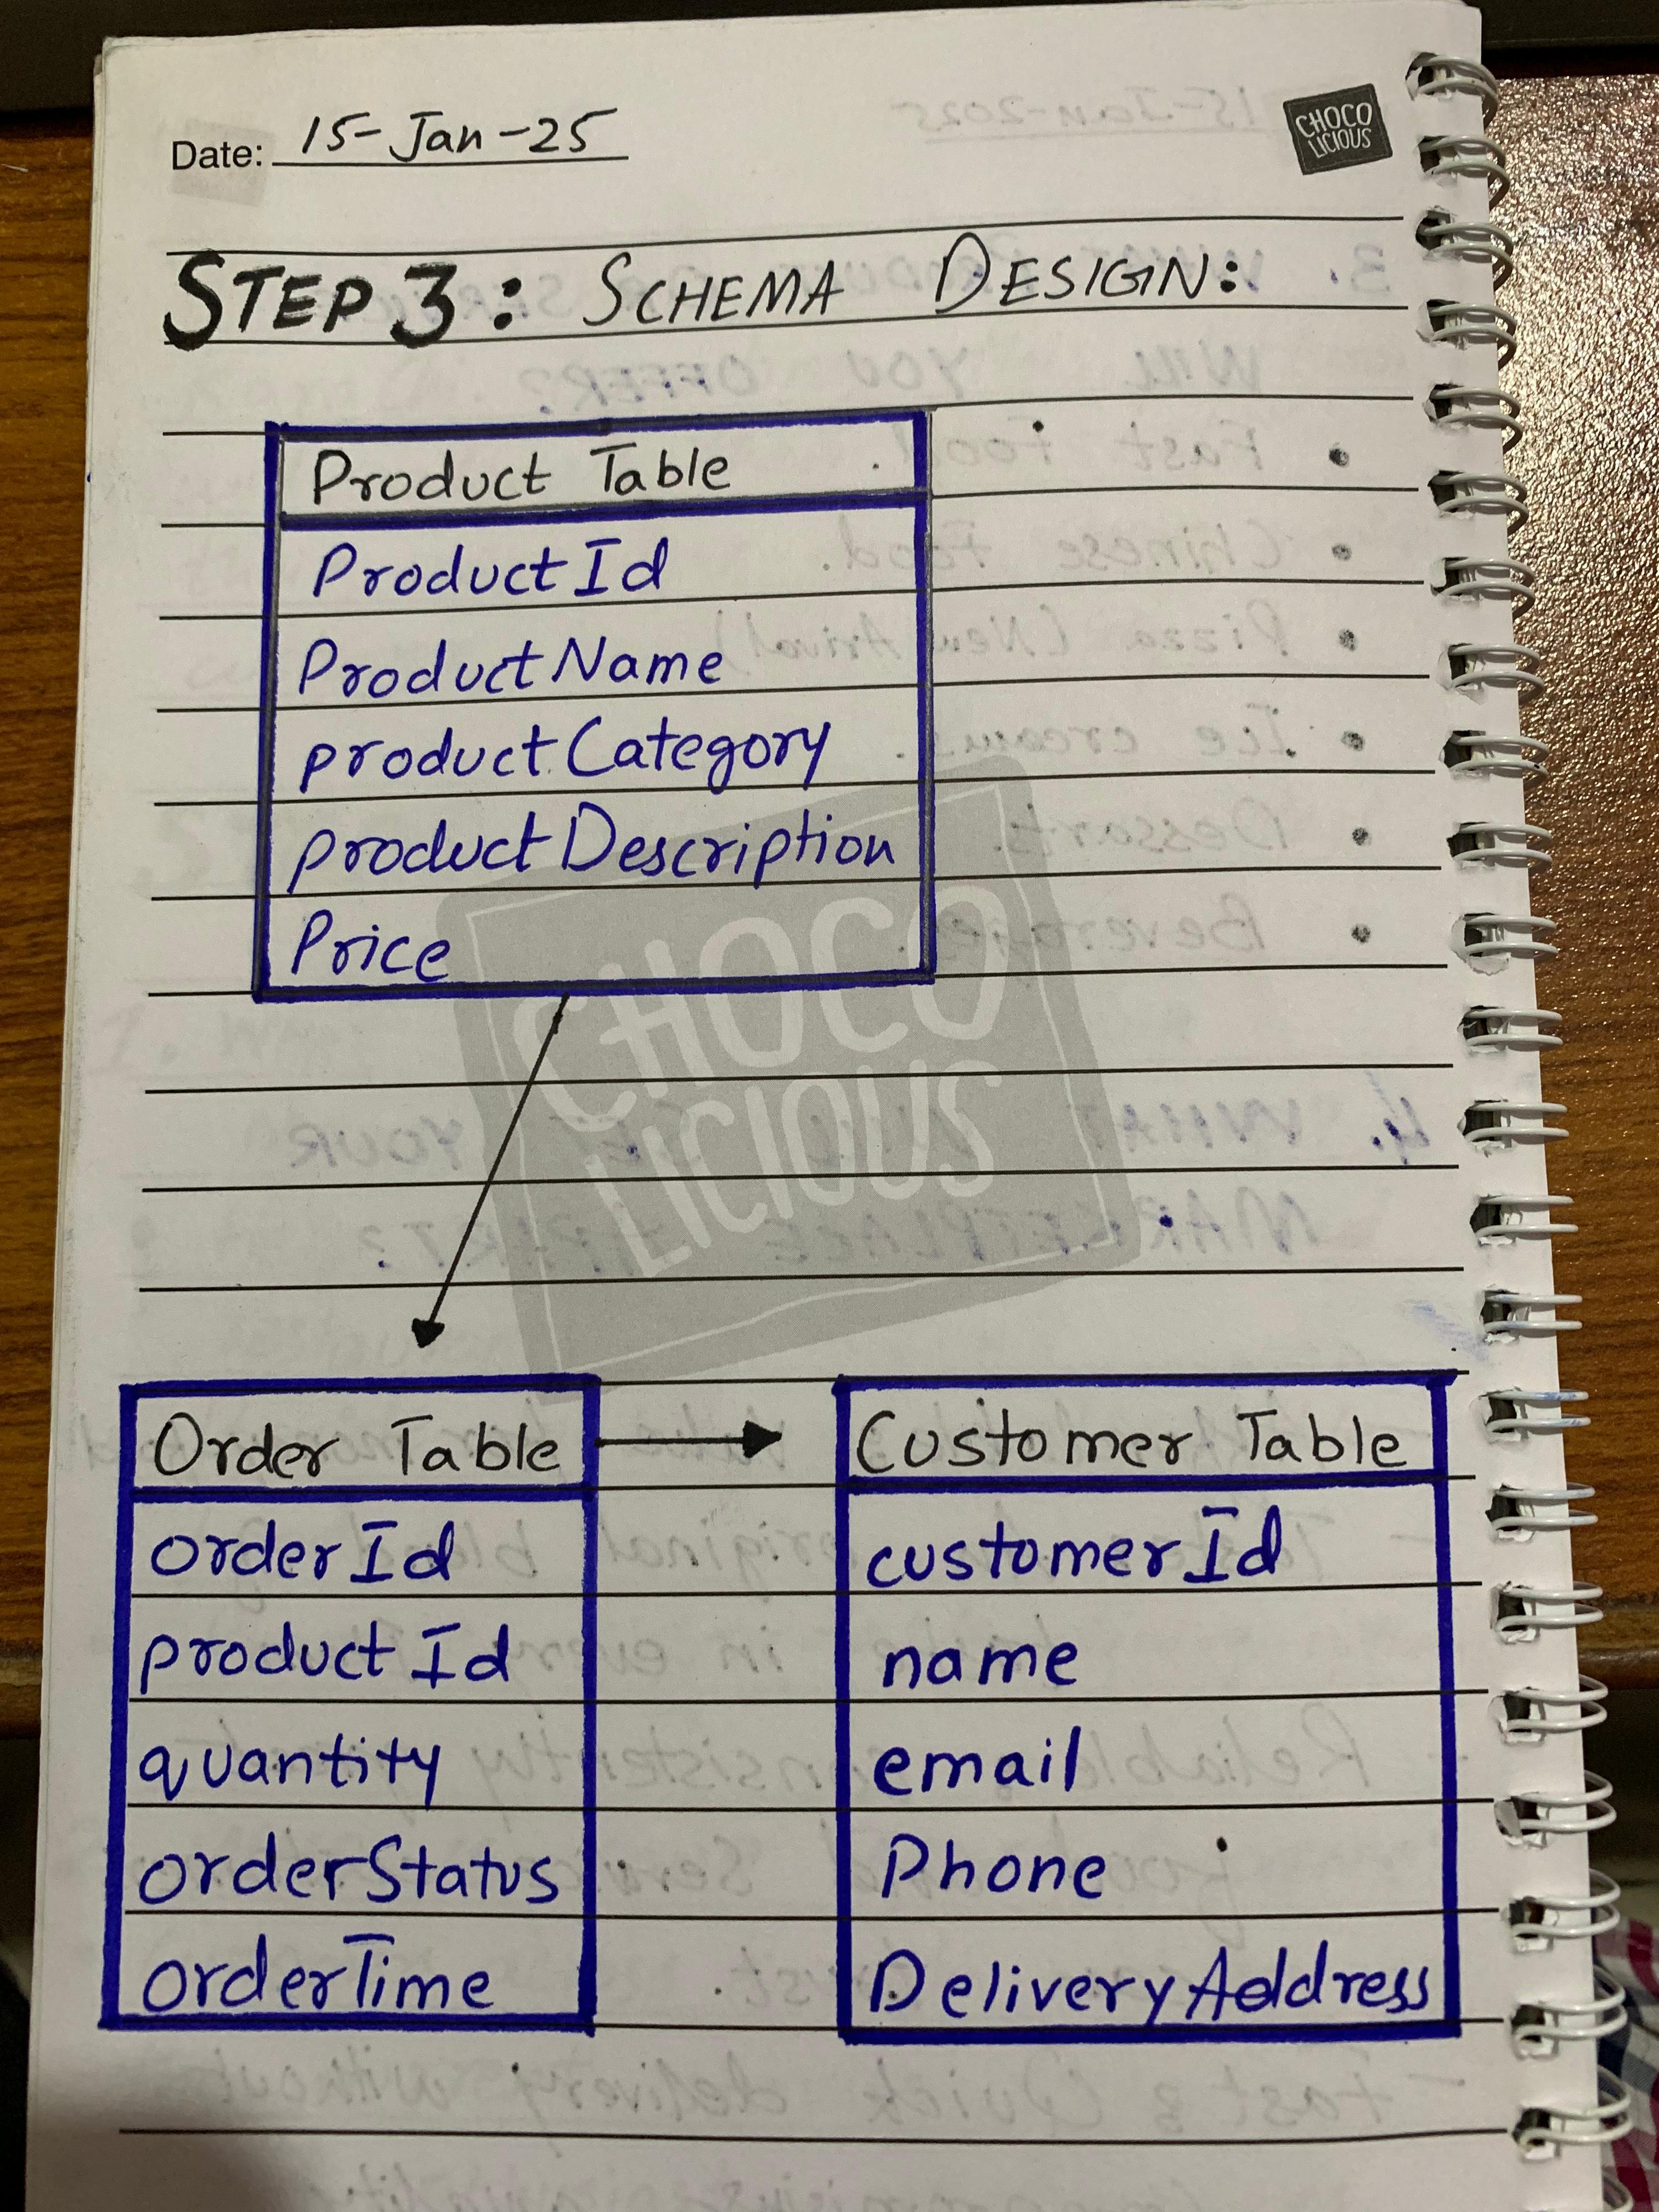 Date: 15-Jan-25
CHOCO
LICIOUS
STEP 3: SCHEMA DESIGN:
Product Table
ProductId
ProductName
productCategory
productDescription
Price
CHOCO
LICIOUS
Order Table
orderId
productId
quantity
orderStatus
orderTime
Customer Table
customerId
name
email
Phone
DeliveryAddress